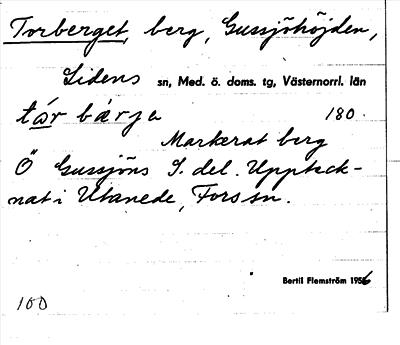 Torberget, berg, Gussjöhöjden,
Lidens sn, Med. ö. doms. tg, Västernorrl. län
tår bärja 180.
Markerat berg
Ö Gussjöns S. del. Uppteck-
nat i Utanede, Fors sn.
Bertil Flemström 1956
100